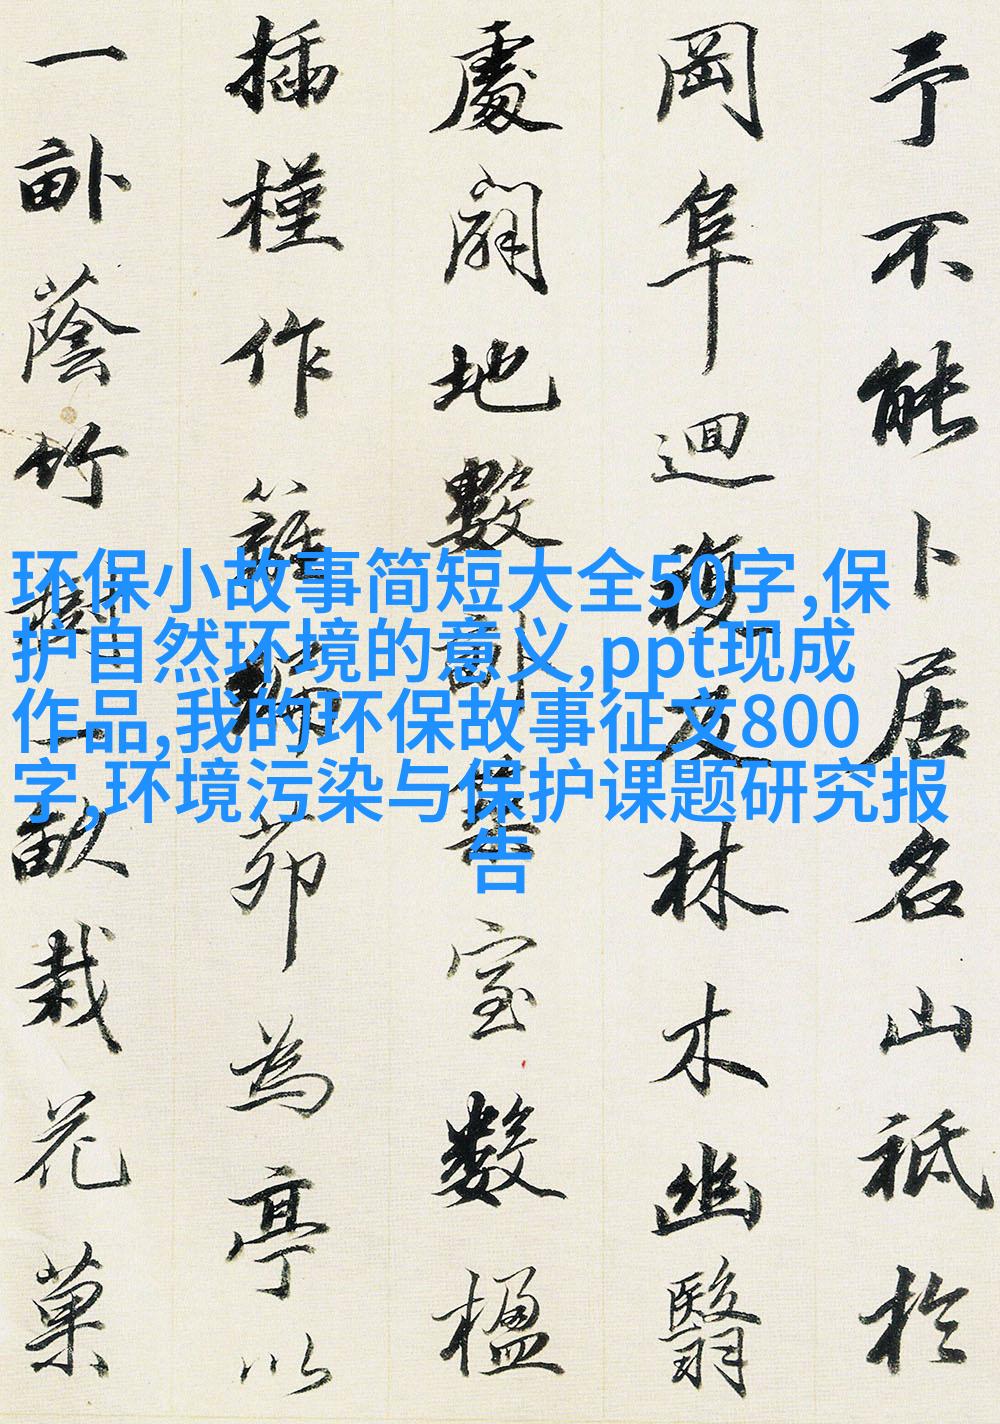 予不能卜居名山祗於
岡阜迴複及林木幽翳
處闢地數畝築室數楹
插槿作籬編茆為亭以
一畝蔭竹樹一畝栽花菓
环保小故事简短大全50字,保
护自然环境的意义,ppt现成
作品,我的环保故事征文800
字,环境污染与保护课题研究报
告